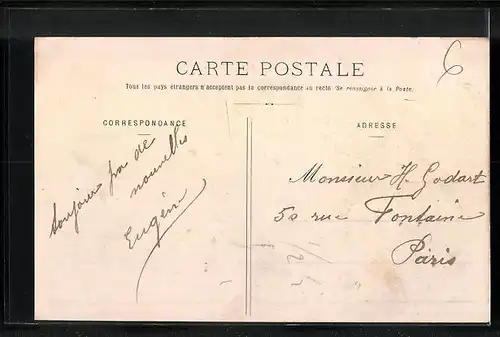 6
CARTE POSTALE
Tous les pays étrangers n'acceptent pas la correspondance au recto (Se renseigner à la Poste.
CORRESPONDANCE
ADRESSE
toujours pa de
nouvelles
Eugène
Monsieur H. Godart
50 rue Fontaine
Paris